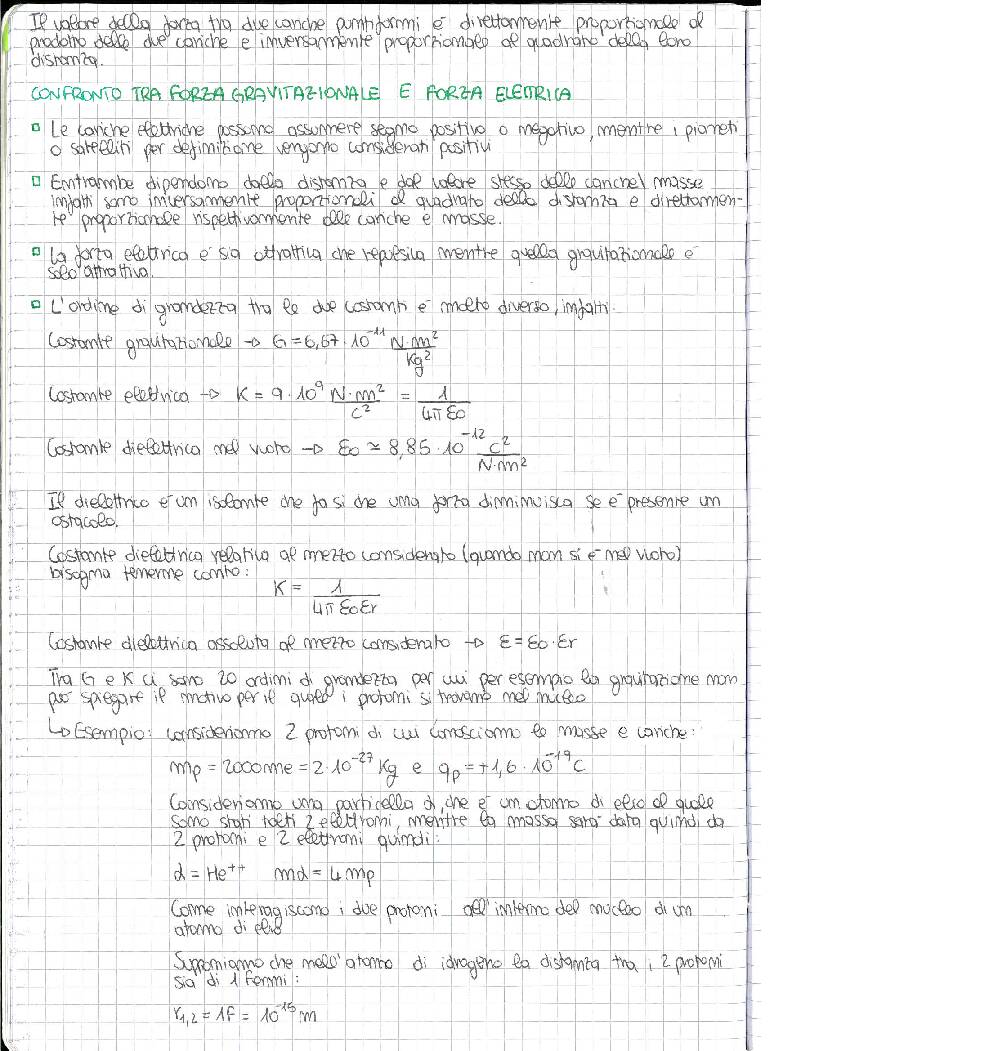 Il valore della forza tra due cariche puntiformi è direttamente proporzionale al
prodotto delle due cariche e inversamente proporzionale al quadrato della loro
distanza.
CONFRONTO TRA FORZA GRAVITAZIONALE E FORZA ELETTRICA
▫ Le cariche elettriche possono assumere segno positivo o negativo, mentre i pianeti
o satelliti per definizione vengono considerati positivi
▫ Entrambe dipendono dalla distanza e dal valore stesso delle cariche\ masse
infatti sono inversamente proporzionali al quadrato della distanza e direttamen-
te proporzionale rispettivamente alle cariche e masse.
▫ La forza elettrica è sia attrattiva che repulsiva mentre quella gravitazionale è
solo attrattiva.
▫ L'ordine di grandezza tra le due costanti è molto diverso, infatti.
Costante gravitazionale → G = 6,67 · 10⁻¹¹ N·m²/Kg²
Costante elettrica → K = 9 · 10⁹ N·m²/C² = 1/4π ε0
Costante dielettrica nel vuoto → ε0 ≃ 8,85 · 10⁻¹² C²/N·m²
Il dielettrico è un isolante che fa si che una forza diminuisca se è presente un
ostacolo.
Costante dielettrica relativa al mezzo considerato (quando non si è nel vuoto)
bisogna tenerne conto:
K = 1/4π ε0 εr
Costante dielettrica assoluta al mezzo considerato → ε = ε0 · εr
Tra G e K ci sono 20 ordini di grandezza per cui per esempio la gravitazione non
può spiegare il motivo per il quale i protoni si trovano nel nucleo
↳ Esempio: consideriamo 2 protoni di cui conosciamo le masse e cariche:
mp = 2000me = 2 · 10⁻²⁷ Kg e qp = +1,6 · 10⁻¹⁹ C
Consideriamo una particella α, che è un atomo di elio al quale
sono stati tolti 2 elettroni, mentre la massa sarà data quindi da
2 protoni e 2 elettroni quindi:
α = He⁺⁺ mα = 4mp
Come interagiscono i due protoni all'interno del nucleo di un
atomo di elio
Supponiamo che nell'atomo di idrogeno la distanza tra i 2 protoni
sia di 1 Fermi:
r1,2 = 1F = 10⁻¹⁵ m